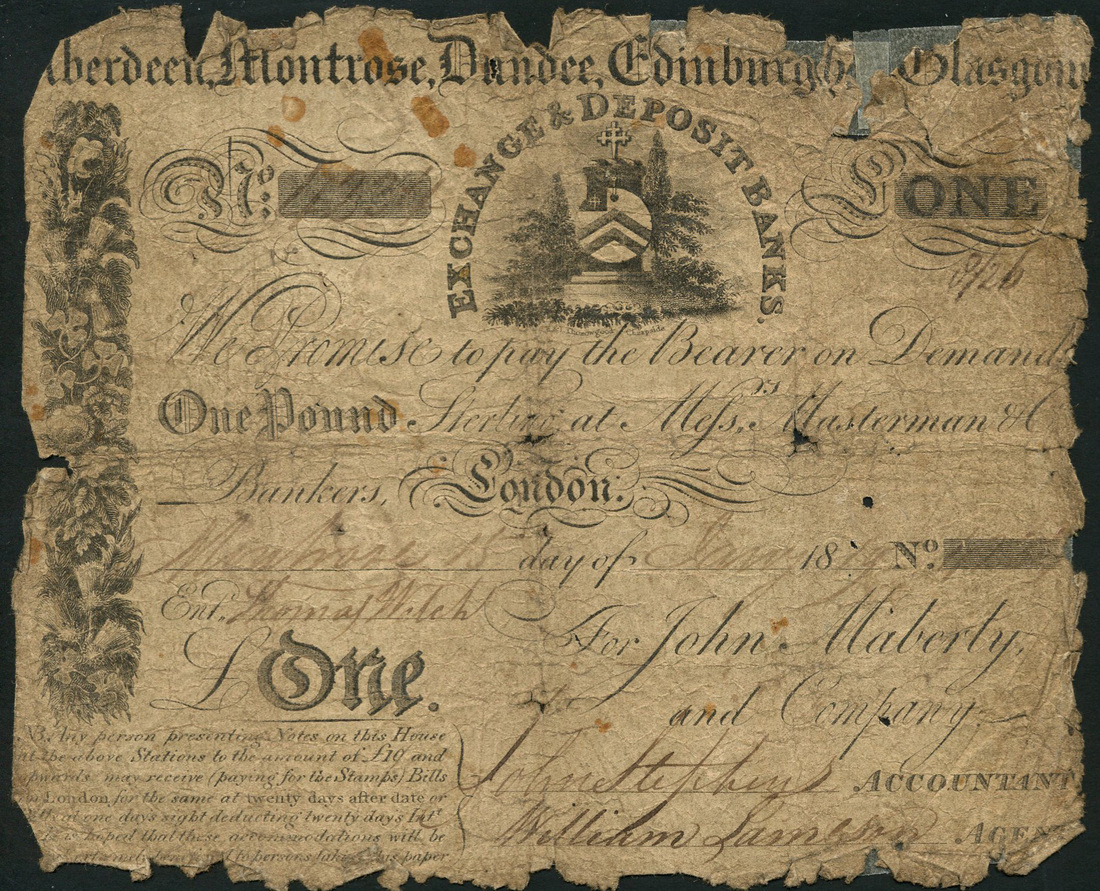 Aberdeen, Montrose, Dundee, Edinburgh & Glasgow
EXCHANGE & DEPOSIT BANKS.
No. £ ONE
8/26
We Promise to pay the Bearer on Demand
One Pound Sterling at Messrs. Masterman & Co
Bankers, London.
Montrose 15 day of Jany 1829 No.
Ent. Thomas Welch
For John Maberly,
and Company.
£ One.
John Stephens ACCOUNTANT
William Jameson AGENT
NB. Any person presenting Notes on this House
at the above Stations to the amount of £10 and
upwards may receive (paying for the Stamps) Bills
on London for the same at twenty days after date or
at one days sight deducting twenty days Intt.
it is hoped that these accommodations will be
to persons taking this paper